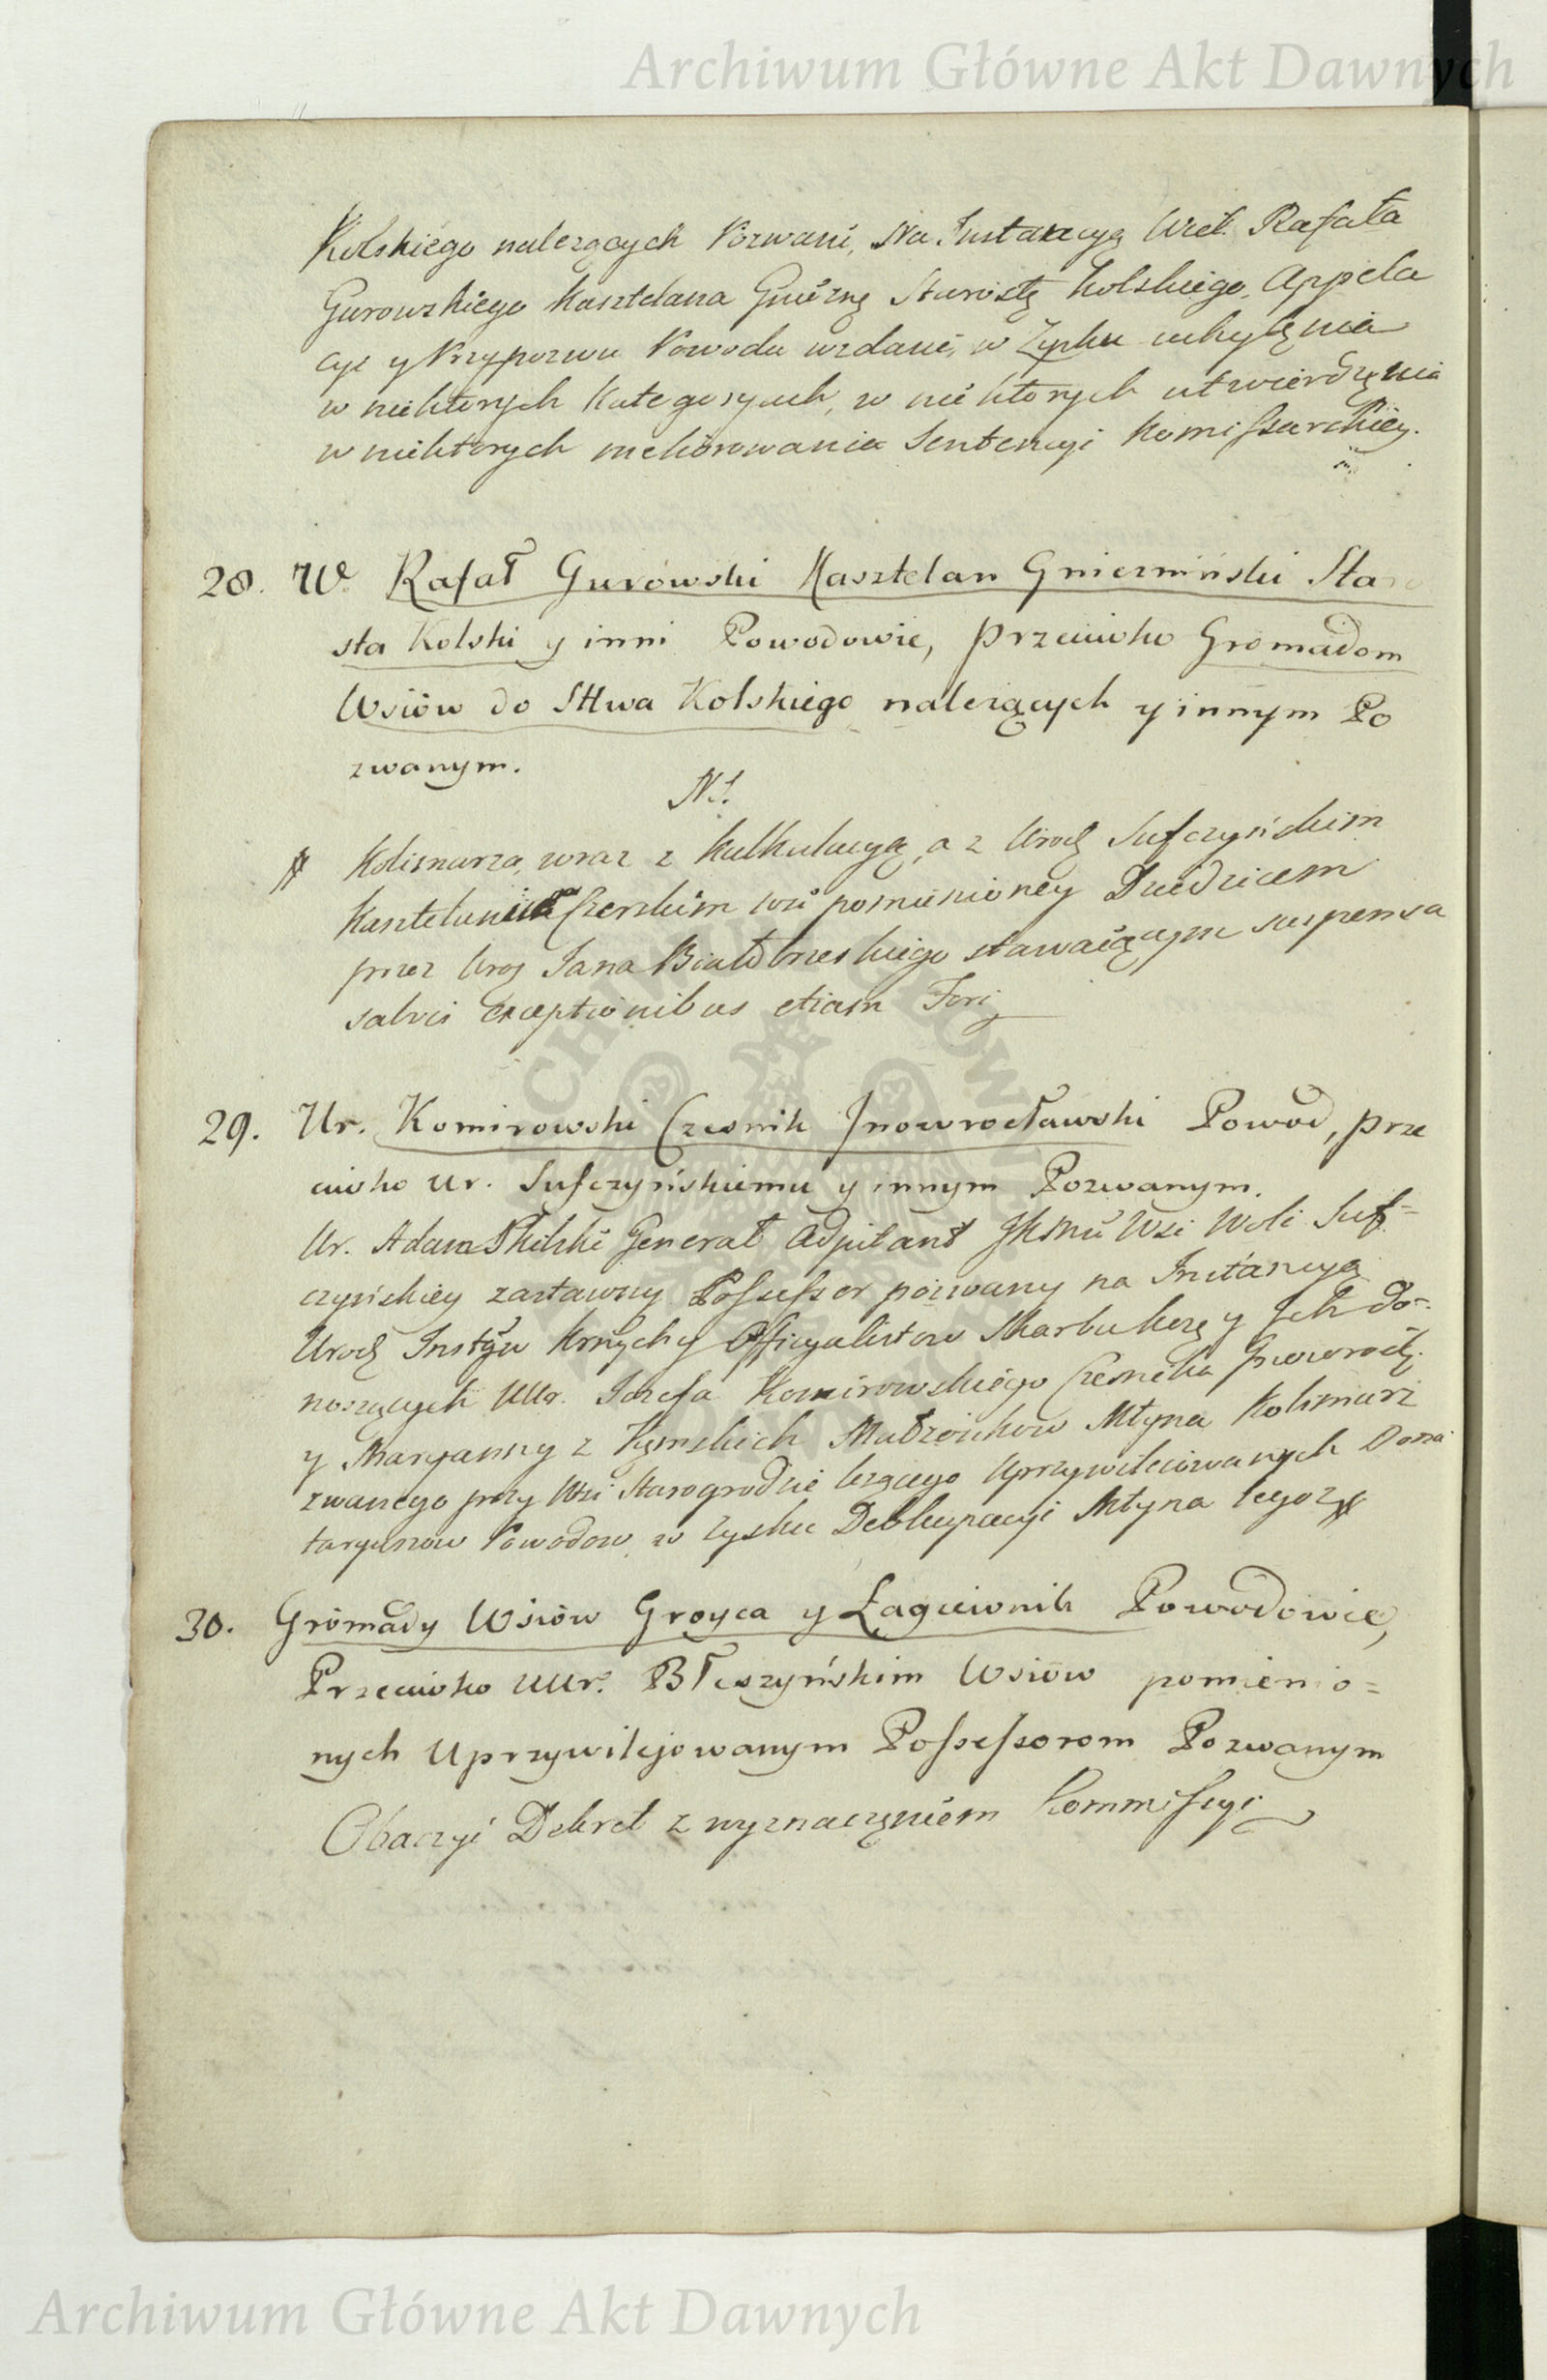 Archiwum Główne Akt Dawnych
Kolskiego nalezących Pozwani, Na Instancyą Wiel. Rafała
Gurowskiego Kasztelana Gnieźnę Starostę Kolskiego, Appella
cyi y Przypozwu Powoda wzdani, w Zysku uchylęnia
w niektorych Kategoryach, w niektorych utwierdzęnia
w niektorych meliorowania Sentencyi Komissarskiey.
28. W. Rafał Gurowski Kasztelan Gniezniński Staro
sta Kolski y inni Powodowie, przeciwko Gromadom
Wsiów do Sttwa Kolskiego nalezących y innym Po
zwanym.
NS.
# Kolisnarza, wraz z Kalkulacyą, a z Urodz Sufczyńskim
Kasztelanic Czerskim wsi pomienioney Dziedzicem
przez Uroz Jana Białobrzeskiego stawaiącym suspensa
salvis exceptionibus etiam Fori
29. Ur. Komirowski Czesnik Jnowrocławski Powod, prze
ciwko Ur. Sufczyńskiemu y innym Pozwanym.
Ur. Adam Skilski Generał Adjutant JKMci Wsi Woli Suf=
czyńskiey zastawny Possessor pozwany na Instancyą
Urodz Instygu Krnych y Officyalistow Skarbu Kerę y Jch do=
noszących UUr. Jozefa Komirowskiego Czesnika Jnowrocł.
y Maryanny z Małzonkow Młyna Kolisnarz
zwanego przy Wsi Starogrodzie lezącego Uprzywileiowanych Dona
taryuszow Powodow, w Zysku Debkupacyi Młyna tegoz #
30. Gromady Wsiów Groyca y Łagiewnik Powodowie,
Przeciwko UUr. Błeszyńskim Wsiów pomienio=
nych Uprzywilejowanym Possessorom Pozwanym
Obaczyć Dekret z wyznaczęniem Kommissyi
Archiwum Główne Akt Dawnych